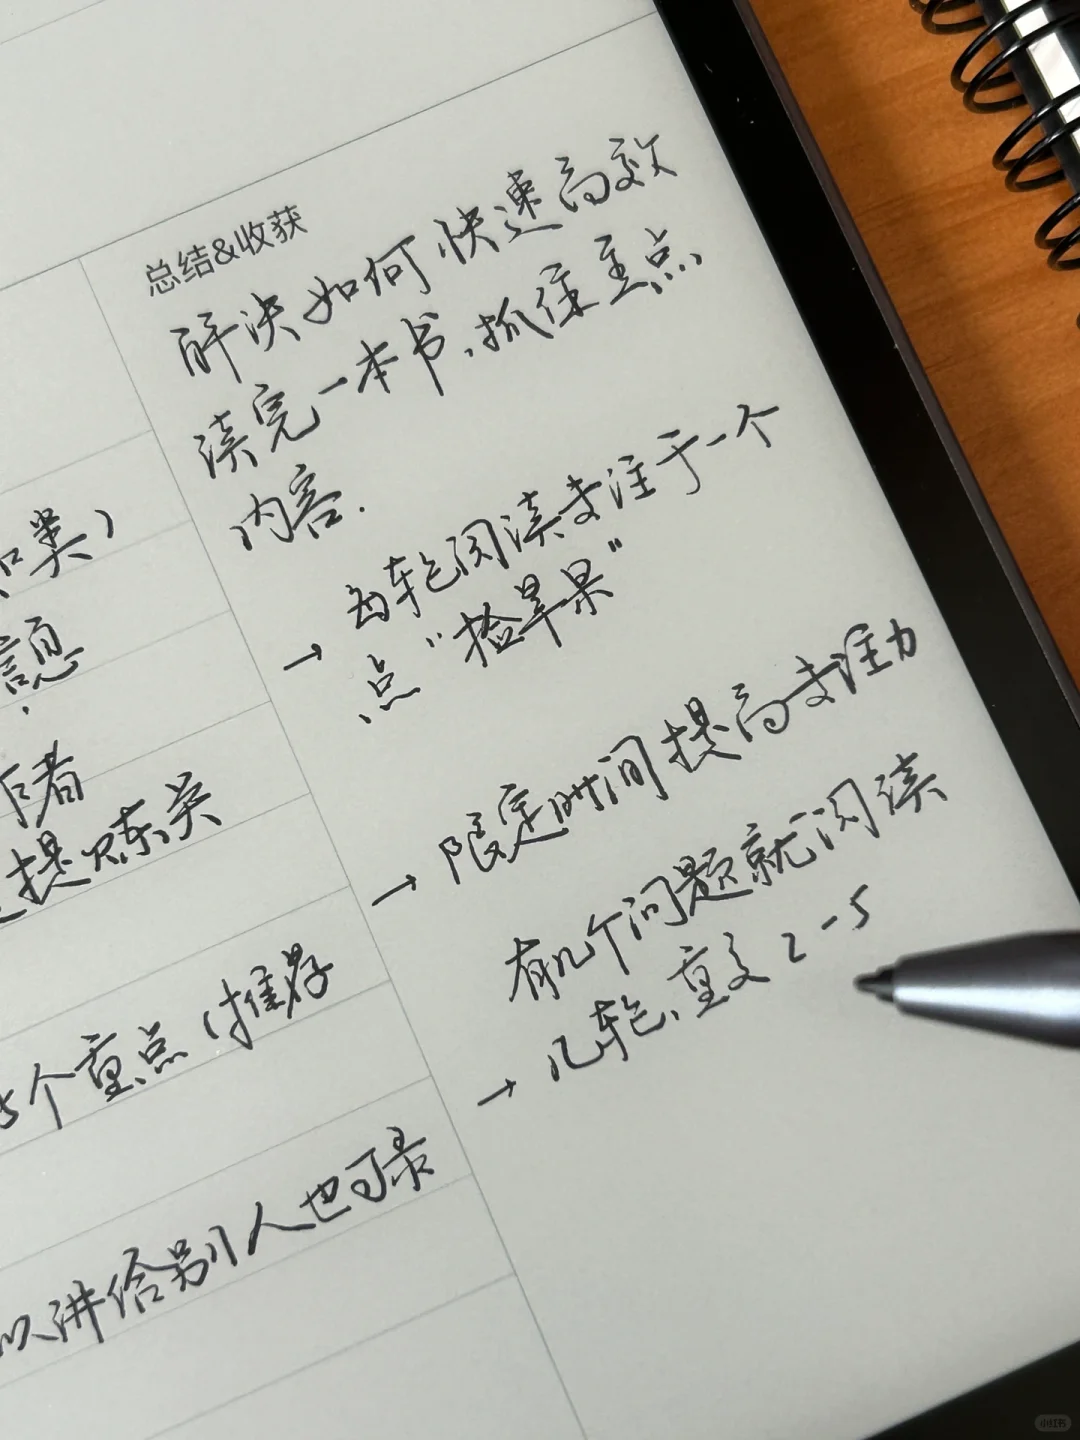 总结&收获
解决如何快速高效
读完一本书，抓住重点
内容.
→ 每轮阅读专注于一个
点"拾草果"
→ 限定时间提高专注力
有几个问题就阅读
→ 几轮，重复2-5
类）
信息
者
提炼关
5个重点（推荐
以讲给别人也可录
小红书